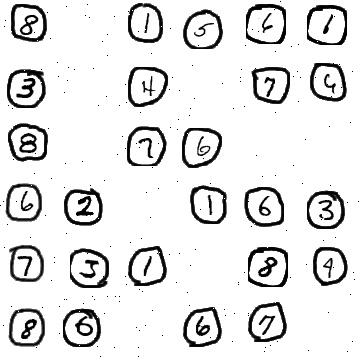 8 1 5 6 1
3 4 7 6
8 7 6
6 2 1 6 3
7 3 1 8 4
8 6 6 7